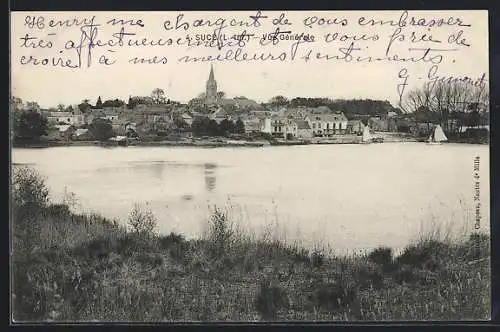 Henry me chargent de vous embrasser
très affectueusement et vous prie de
4. SUCÉ (L.-Inf.) Vue Générale
croire à mes meilleurs sentiments.
Chapeau, Nantes